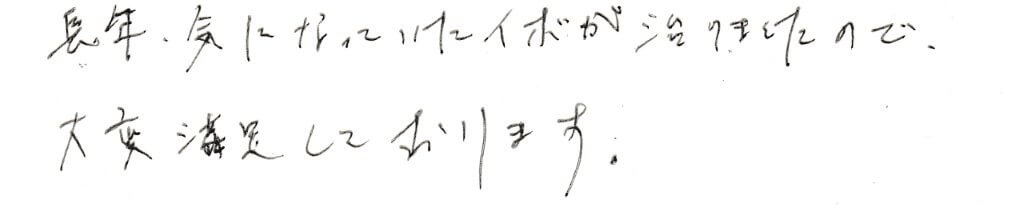 長年、気になっていたイボが治りましたので、
大変満足しております。